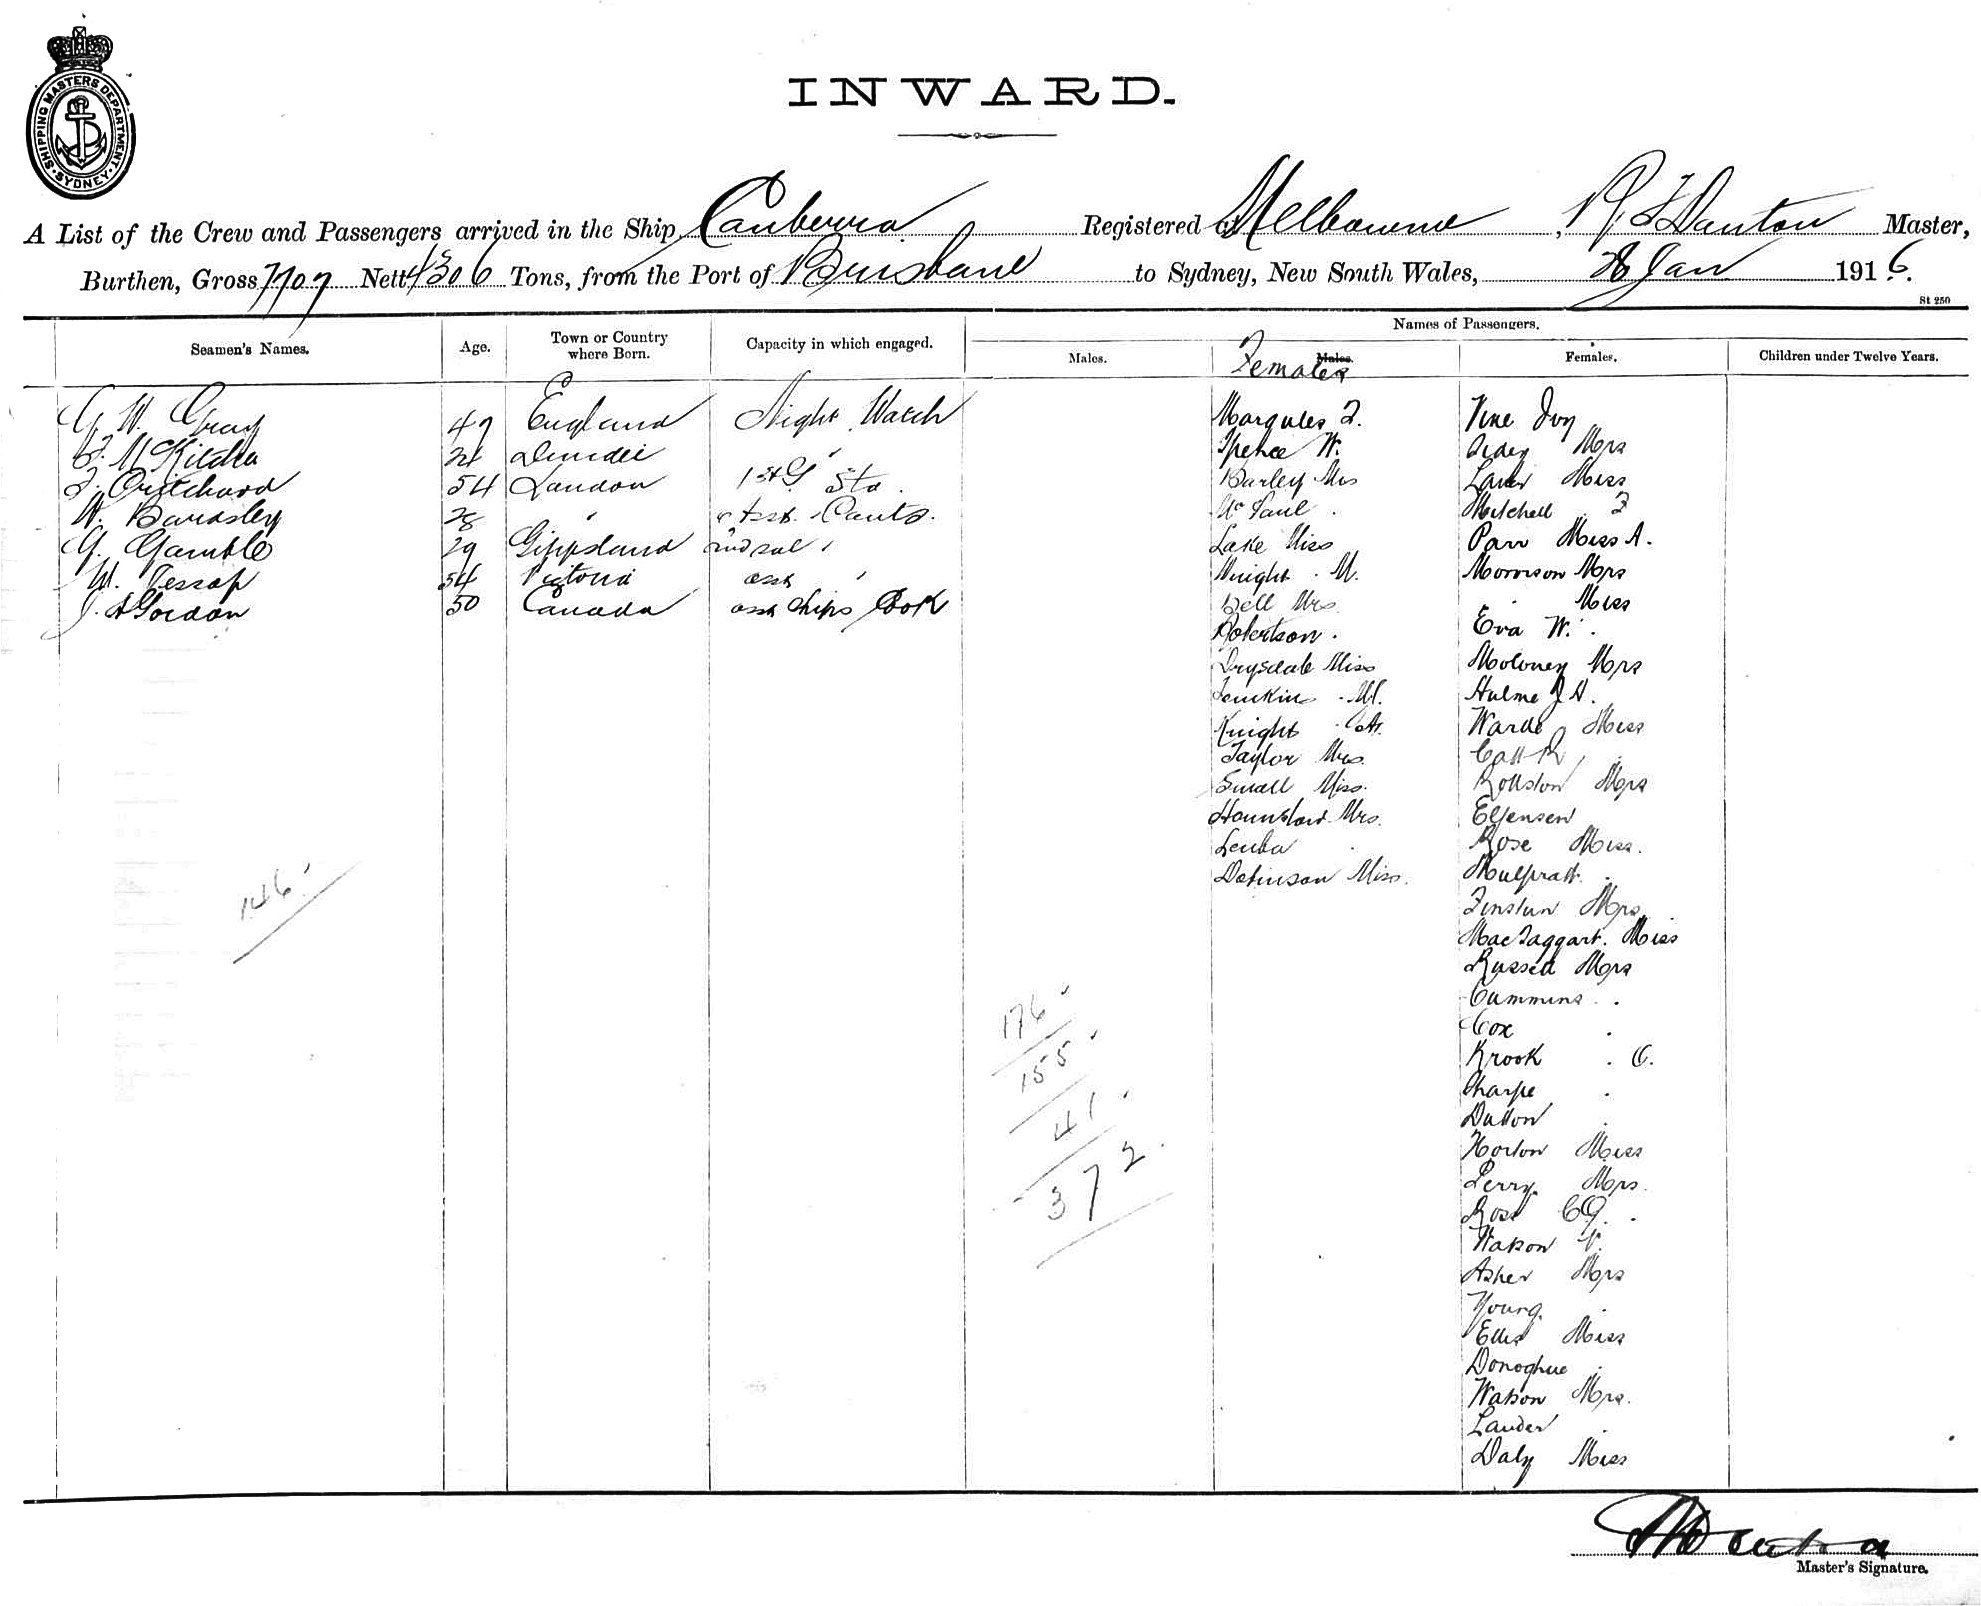 SHIPPING MASTERS DEPARTMENT
SYDNEY
INWARD.
A List of the Crew and Passengers arrived in the Ship Canberra Registered at Melbourne, Danton Master,
Burthen, Gross 7707 Nett 4306 Tons, from the Port of Brisbane to Sydney, New South Wales, Jan 1916.
St 250
Seamen's Names. Age. Town or Country where Born. Capacity in which engaged. Names of Passengers.
Males. Males. Females. Children under Twelve Years.
Females
G. W. Gray 47 England Night Watch
Dundee
Pritchard 54 London 1st Std.
W. Bardsley 28 " Asst. Pants.
G. Gamble 29 Gippsland 2nd "
W. Jessop 54 Victoria asst "
J. A Gordon 50 Canada asst Ships Cook
Margules
Spence W.
Barley Mrs
Mc Paul
Lake Miss
Wright M.
Bell Mrs
Robertson
Drysdale Miss
Jenkins M.
Knight
Taylor Mrs.
Small Miss.
Hounslow Mrs.
Leuba
Dobinson Miss.
Vine Ivy
Mrs
Miss
Mitchell
Parr Miss A.
Morrison Mrs
" Miss
Eva W.
Moloney Mrs
Hulme J A.
Warde Miss
Catt R
Rollston Mrs
Eljensen
Rose Miss.
Mulpratt
Mrs
MacTaggart. Miss
Russell Mrs
Cummins
Cox
Krook . C.
Sharpe
Dutton
Horton Miss
Perry Mrs.
Ross C G.
Watson
Asher Mrs
Young.
Ellis Miss
Donoghue
Watson Mrs.
Lauder
Daly Miss
146
176
155
41
372
Master's Signature.